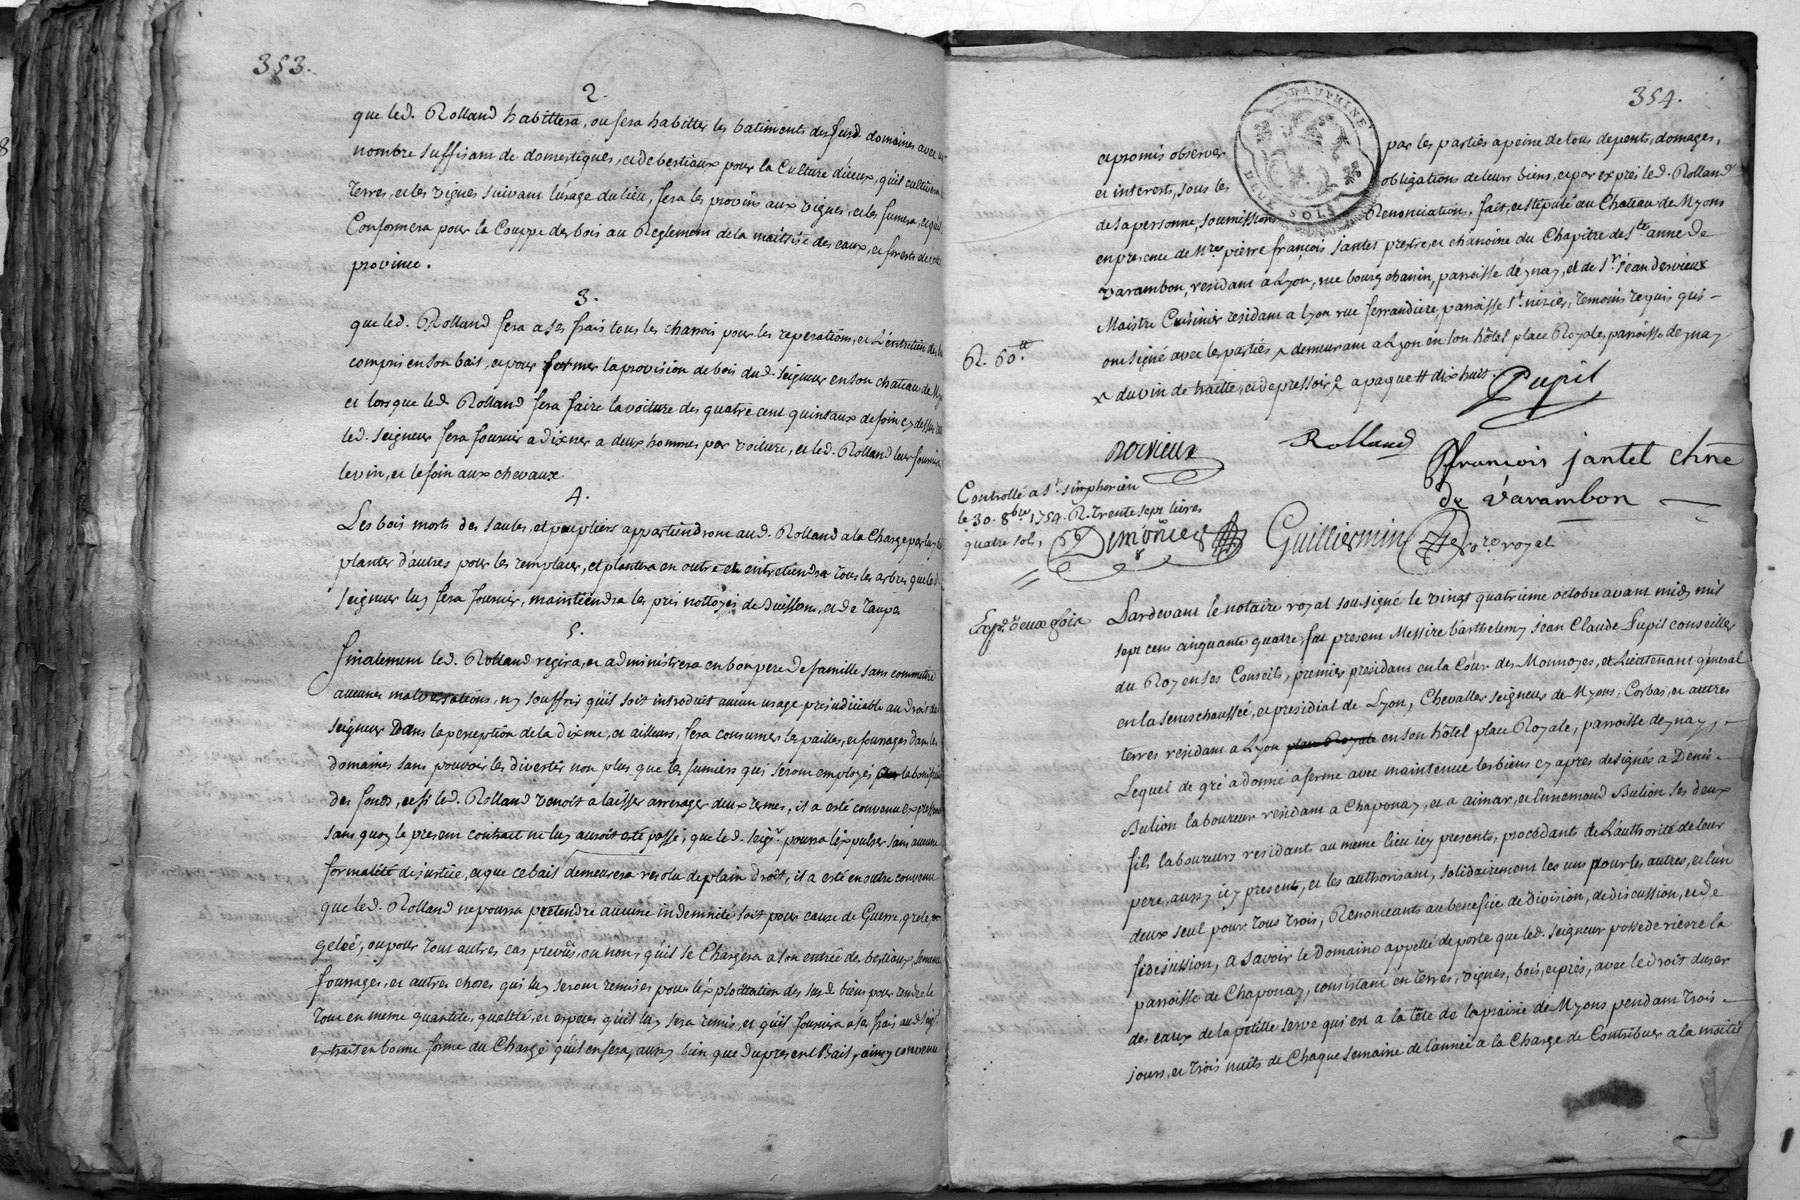 353.
2.
que led. Rolland habittera, ou fera habitter les batiments des susd. domaines avec un
nombre suffisant de domestiques, et de bestiaux pour la Culture d'iceux, quil cultivera
terres, et les vignes suivant l'usage du lieu, fera les provins aux vignes, et les fumera, et quil
Conformera pour la Couppe des bois au Reglement de la maitrise des eaux, et forests de cette
province.
3.
que led. Rolland fera a ses frais tous les charrois pour les reperations, et L'entretien des
compris en son bail, et pour former la provision de bois dud. seigneur en son chateau de
et lorsque led. Rolland fera faire la voiture des quatre cent quintaux de foin cy dessus
led. seigneur fera fournir a dixner a deux hommes par voiture, et led. Rolland leur fournira
le vin, et le foin aux chevaux.
4.
Les bois morts des saules, et peupliers appartiendront aud. Rolland a la Charge par luy
planter d'autres pour les remplacer, et plantera en outre et entretiendra tous les arbres que led.
seigneur luy fera fournir, maintiendra les prés nottoyés de Buissons, et de taupes
5.
finalement led. Rolland regira, et administrera en bon pere de famille sans commettre
aucunes malversations, ny souffrir qu'il soit introduit aucun usage prejudiciable au droit du
seigneur Dans la perception de la dixme, et ailleurs, fera consumer les pailles, et fourrages dans les
domaines sans pouvoir les divertir non plus que les fumiers qui seront employés
des fonds, et si led. Rolland venoit a laisser arrerager deux termes, il a esté convenu expressement
sans quoy le present contrat ne luy auroit esté passé, que led. seigr. pourra l'expulser sans aucune
formalité de justice, et que ce bail demeurera resolu de plain droit, il a esté en outre convenu
que led. Rolland ne pourra pretendre aucune indemnité soit pour cause de Guerre, grele,
gelée, ou pour tout autres cas prevûs, ou non, qu'il se Chargera a son entrée des bestiaux, semences
fourrages, et autres choses qui luy seront remises pour l'exploittation des susd. biens pour rendre le
tout en meme quantité, qualité, et especes qu'il luy sera remis, et qu'il fournira a ses frais aud. seigr.
extrait en bonne forme du Chargé qu'il en fera, aussy bien que du present Bail, ainsy convenu
354.
DAUPHINE
DEUX SOLS
et promis observer par les parties a peine de tous depents, domages,
et interests, sous les obligations de leurs biens, et par exprès led. Rolland
de sa personne, soumission Renonciation, fait, et stipulé au Chateau de Myons
en presence de Mre. pierre françois jantet prestre, et chanoine du Chapitre de Ste. anne de
varambon, residant a Lyon, rue bourg chanin, parroisse d'eynay, et de Sr. jean dervieux
Maistre Cuisinier residant a lyon rue ferrandiere, parroisse St. niziés, temoins requis qui
ont signé avec les parties x demeurant a Lyon en son hôtel place Royale, parroisse deynay
x du vin de traitte, et de pressoir 2 a paque # dix huit.
R. 60.tt
Pupil
Dervieux
Rolland
françois jantet chne
de varambon
Controllé a St. simphorien
le 30. 8bre 1754. R. trente sept livres
quatre sols,
Simonier
Guilliermin
no.re royal
Exp. deux fois
Pardevant le notaire royal soussigné le vingt quatrieme octobre avant midy mil
sept cent cinquante quatre, fut present Messire barthelemy jean Claude Pupil conseiller
du Roy en ses Conseils, premier president en la Cour des Monnoyes, et Lieutenant général
en la senechaussée, et presidial de Lyon, Chevallier seigneur de Myons, Corbas, et autres
terres residant a Lyon place Royale en son hôtel place Royale, parroisse deynay,
Lequel de gré a donné a ferme avec maintenue les biens cy apres designés a Denis
Bulion laboureur residant a Chaponay, et a aimar, et Ennemond Bulion ses deux
fils laboureurs residants au meme lieu icy presents, procédants de L'authorité de leur
pere, aussy icy present, et les authorisant, solidairement les uns pour les autres, et l'un
deux seul pour tous trois, Renonceants au benefice de division, de discussion, et de
fidejussion, a savoir le Domaine appellé de porte que led. seigneur possede rierre la
parroisse de Chaponay, consistant en terres, vignes, bois, et près, avec le droit duser
des eaux de la petitte serve qui est a la tête de la prairie de Myons pendant trois
jours, et trois nuits de Chaque semaine de l'année a la Charge de Contribuer a la moitié